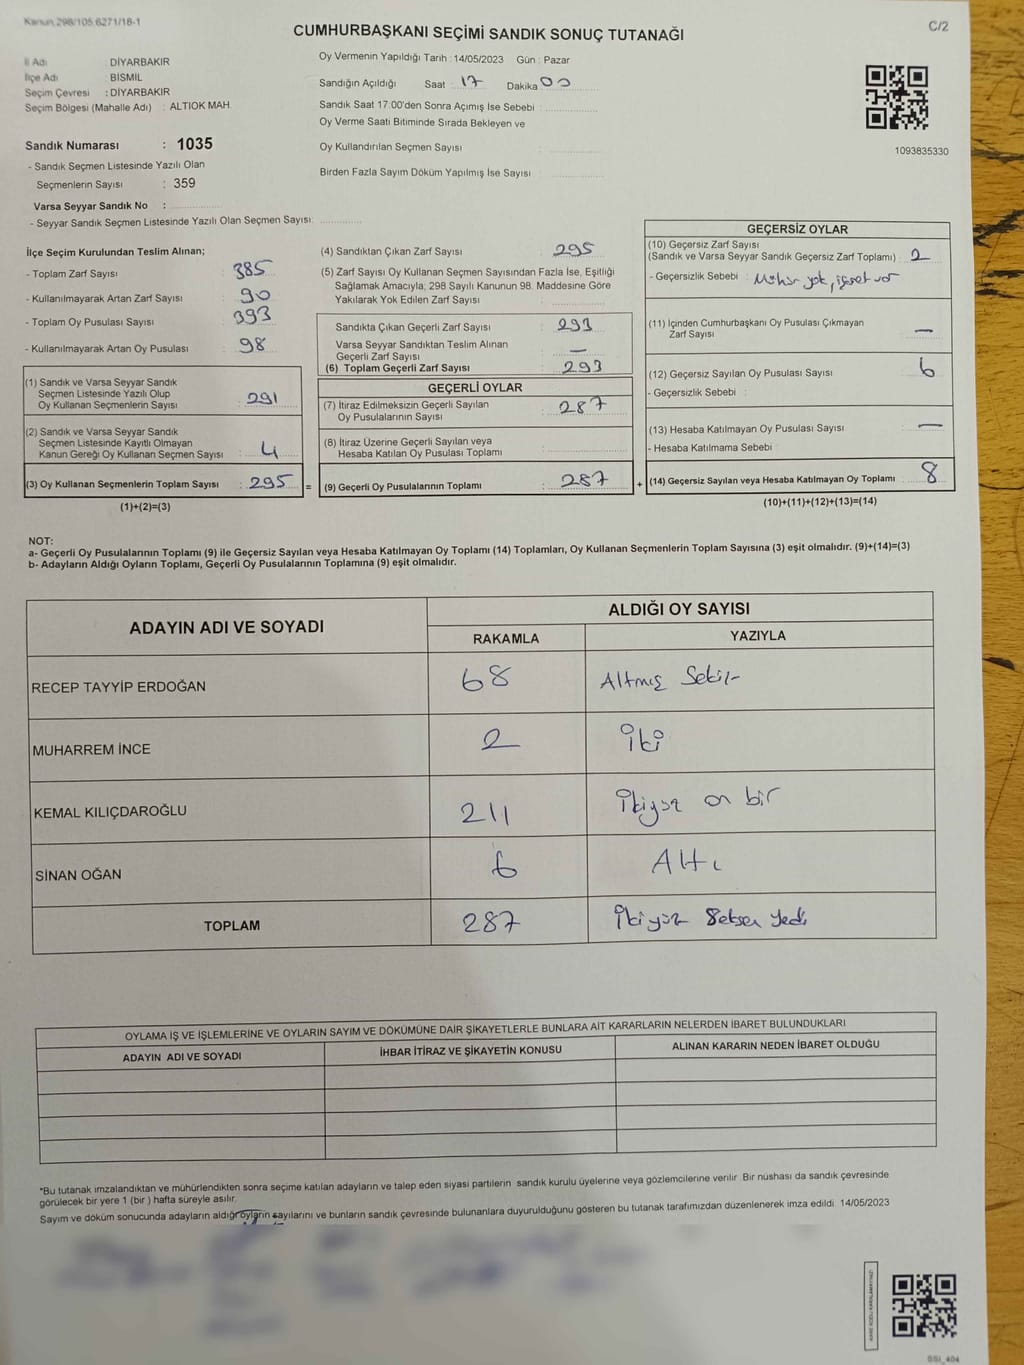 Kanun 298/105.6271/16-1
C/2
CUMHURBAŞKANI SEÇİMİ SANDIK SONUÇ TUTANAĞI
İl Adı : DİYARBAKIR
İlçe Adı : BİSMİL
Seçim Çevresi : DİYARBAKIR
Seçim Bölgesi (Mahalle Adı) : ALTIOK MAH
Sandık Numarası : 1035
- Sandık Seçmen Listesinde Yazılı Olan
Seçmenlerin Sayısı : 359
Varsa Seyyar Sandık No :
- Seyyar Sandık Seçmen Listesinde Yazılı Olan Seçmen Sayısı:
Oy Vermenin Yapıldığı Tarih : 14/05/2023 Gün : Pazar
Sandığın Açıldığı Saat : 17 Dakika : 00
Sandık Saat 17:00'den Sonra Açımış İse Sebebi :
Oy Verme Saati Bitiminde Sırada Bekleyen ve
Oy Kullandırılan Seçmen Sayısı :
Birden Fazla Sayım Döküm Yapılmış İse Sayısı :
1093835330
İlçe Seçim Kurulundan Teslim Alınan;
- Toplam Zarf Sayısı : 385
- Kullanılmayarak Artan Zarf Sayısı : 90
- Toplam Oy Pusulası Sayısı : 393
- Kullanılmayarak Artan Oy Pusulası : 98
(1) Sandık ve Varsa Seyyar Sandık
Seçmen Listesinde Yazılı Olup
Oy Kullanan Seçmenlerin Sayısı : 291
(2) Sandık ve Varsa Seyyar Sandık
Seçmen Listesinde Kayıtlı Olmayan
Kanun Gereği Oy Kullanan Seçmen Sayısı : 4
(3) Oy Kullanan Seçmenlerin Toplam Sayısı : 295 =
(1)+(2)=(3)
(4) Sandıktan Çıkan Zarf Sayısı : 295
(5) Zarf Sayısı Oy Kullanan Seçmen Sayısından Fazla İse, Eşitliği
Sağlamak Amacıyla; 298 Sayılı Kanunun 98. Maddesine Göre
Yakılarak Yok Edilen Zarf Sayısı :
Sandıkta Çıkan Geçerli Zarf Sayısı : 293
Varsa Seyyar Sandıktan Teslim Alınan
Geçerli Zarf Sayısı : —
(6) Toplam Geçerli Zarf Sayısı : 293
GEÇERLİ OYLAR
(7) İtiraz Edilmeksizin Geçerli Sayılan
Oy Pusulalarının Sayısı : 287
(8) İtiraz Üzerine Geçerli Sayılan veya
Hesaba Katılan Oy Pusulası Toplamı :
(9) Geçerli Oy Pusulalarının Toplamı : 287 +
GEÇERSİZ OYLAR
(10) Geçersiz Zarf Sayısı
(Sandık ve Varsa Seyyar Sandık Geçersiz Zarf Toplamı) : 2
- Geçersizlik Sebebi : Mühür yok, işaret var
(11) İçinden Cumhurbaşkanı Oy Pusulası Çıkmayan
Zarf Sayısı : —
(12) Geçersiz Sayılan Oy Pusulası Sayısı : 6
- Geçersizlik Sebebi :
(13) Hesaba Katılmayan Oy Pusulası Sayısı : —
- Hesaba Katılmama Sebebi :
(14) Geçersiz Sayılan veya Hesaba Katılmayan Oy Toplamı : 8
(10)+(11)+(12)+(13)=(14)
NOT:
a- Geçerli Oy Pusulalarının Toplamı (9) ile Geçersiz Sayılan veya Hesaba Katılmayan Oy Toplamı (14) Toplamları, Oy Kullanan Seçmenlerin Toplam Sayısına (3) eşit olmalıdır. (9)+(14)=(3)
b- Adayların Aldığı Oyların Toplamı, Geçerli Oy Pusulalarının Toplamına (9) eşit olmalıdır.
ADAYIN ADI VE SOYADI ALDIĞI OY SAYISI
RAKAMLA YAZIYLA
RECEP TAYYİP ERDOĞAN 68 Altmış Sekiz
MUHARREM İNCE 2 İki
KEMAL KILIÇDAROĞLU 211 İkiyüz on bir
SİNAN OĞAN 6 Altı
TOPLAM 287 İkiyüz Seksen Yedi
OYLAMA İŞ VE İŞLEMLERİNE VE OYLARIN SAYIM VE DÖKÜMÜNE DAİR ŞİKAYETLERLE BUNLARA AİT KARARLARIN NELERDEN İBARET BULUNDUKLARI
ADAYIN ADI VE SOYADI İHBAR İTİRAZ VE ŞİKAYETİN KONUSU ALINAN KARARIN NEDEN İBARET OLDUĞU
*Bu tutanak imzalandıktan ve mühürlendikten sonra seçime katılan adayların ve talep eden siyasi partilerin sandık kurulu üyelerine veya gözlemcilerine verilir. Bir nüshası da sandık çevresinde
görülecek bir yere 1 (bir) hafta süreyle asılır.
Sayım ve döküm sonucunda adayların aldığı oyların sayılarını ve bunların sandık çevresinde bulunanlara duyurulduğunu gösteren bu tutanak tarafımızdan düzenlenerek imza edildi. 14/05/2023